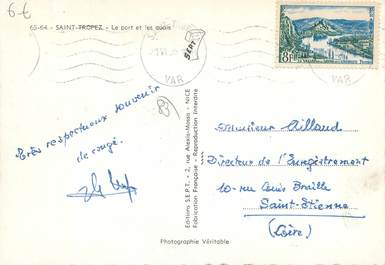 6€
65-64 - SAINT-TROPEZ - Le port et les quais
VAR
VAR
SEPT
8F
83
Très respectueux souvenir
de congé.
Editions S.E.P.T. - 2, rue Alexis-Mossa - NICE
Fabrication Française - Reproduction Interdite
Monsieur Aillaud
Directeur de l'Enregistrement
10 rue Louis Braille
Saint-Etienne
(Loire)
Photographie Véritable